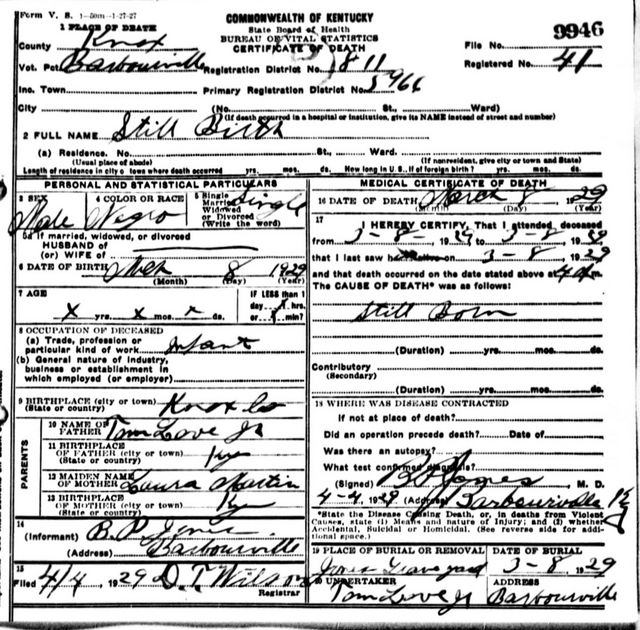 Form V. S. 1-50m-1-27-27
COMMONWEALTH OF KENTUCKY
State Board of Health
BUREAU OF VITAL STATISTICS
CERTIFICATE OF DEATH
9946
1 PLACE OF DEATH
County Knox
File No.
Vot. Pct Barbourville Registration District No. 811
Registered No. 41
Inc. Town Primary Registration District No. 5966
City (No. St., Ward)
(If death occurred in a hospital or institution, give its NAME instead of street and number)
2 FULL NAME Still Birth
(a) Residence. No. St., Ward.
(Usual place of abode) (If nonresident, give city or town and State)
Length of residence in city or town where death occurred yrs. mos. ds. How long in U.S., if of foreign birth? yrs. mos. ds.
PERSONAL AND STATISTICAL PARTICULARS
3 SEX Male
4 COLOR OR RACE Negro
5 Single Married Widowed or Divorced (Write the word) Single
5a If married, widowed, or divorced
HUSBAND of
(or) WIFE of
6 DATE OF BIRTH Mch 8 1929
(Month) (Day) (Year)
7 AGE x yrs. x mos. x ds.
IF LESS than 1 day hrs. or min.
8 OCCUPATION OF DECEASED
(a) Trade, profession or particular kind of work Infant
(b) General nature of Industry, business or establishment in which employed (or employer)
9 BIRTHPLACE (city or town)
(State or country) Knox Co
PARENTS
10 NAME OF FATHER Tom Love Jr
11 BIRTHPLACE OF FATHER (city or town)
(State or country) Ky
12 MAIDEN NAME OF MOTHER Laura Martin
13 BIRTHPLACE OF MOTHER (city or town)
(State or country) Ky
14
(Informant) B. P. Jones
(Address) Barbourville
15
Filed 4/4 1929 D. T. Wilson
Registrar
MEDICAL CERTIFICATE OF DEATH
16 DATE OF DEATH March 8 1929
(Month) (Day) (Year)
17 I HEREBY CERTIFY, That I attended deceased
from 3-8- 1929 to 3-8- 1929
that I last saw h alive on 3-8- 1929
and that death occurred on the date stated above at 4 m.
The CAUSE OF DEATH* was as follows:
Still Born
(Duration) yrs. mos. ds.
Contributory
(Secondary)
(Duration) yrs. mos. ds.
18 WHERE WAS DISEASE CONTRACTED
If not at place of death?
Did an operation precede death? Date of
Was there an autopsy?
What test confirmed diagnosis?
(Signed) B P Jones M. D.
4-4 1929 (Address) Barbourville Ky
*State the Disease Causing Death, or, in deaths from Violent
Causes, state (1) Means and nature of Injury; and (2) whether
Accidental, Suicidal or Homicidal. (See reverse side for additional space.)
19 PLACE OF BURIAL OR REMOVAL Jones Graveyard
DATE OF BURIAL 3-8- 1929
20 UNDERTAKER Tom Love Jr
ADDRESS Barbourville